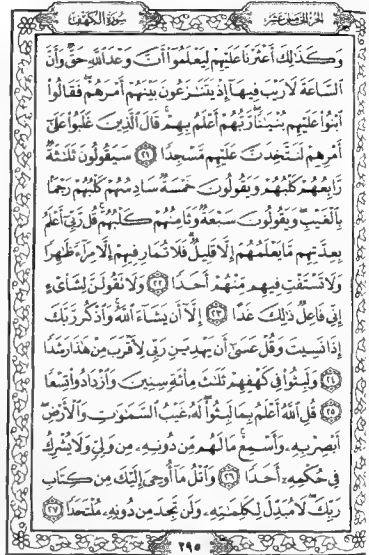 الجزء الخامس عشر
سورة الكهف
وَكَذَٰلِكَ أَعْثَرْنَا عَلَيْهِمْ لِيَعْلَمُوٓا۟ أَنَّ وَعْدَ ٱللَّهِ حَقٌّ وَأَنَّ
ٱلسَّاعَةَ لَا رَيْبَ فِيهَآ إِذْ يَتَنَٰزَعُونَ بَيْنَهُمْ أَمْرَهُمْ ۖ فَقَالُوا۟
ٱبْنُوا۟ عَلَيْهِم بُنْيَٰنًا ۖ رَّبُّهُمْ أَعْلَمُ بِهِمْ ۚ قَالَ ٱلَّذِينَ غَلَبُوا۟ عَلَىٰٓ
أَمْرِهِمْ لَنَتَّخِذَنَّ عَلَيْهِم مَّسْجِدًا ٢١ سَيَقُولُونَ ثَلَٰثَةٌ
رَّابِعُهُمْ كَلْبُهُمْ وَيَقُولُونَ خَمْسَةٌ سَادِسُهُمْ كَلْبُهُمْ رَجْمًۢا
بِٱلْغَيْبِ ۖ وَيَقُولُونَ سَبْعَةٌ وَثَامِنُهُمْ كَلْبُهُمْ ۚ قُل رَّبِّىٓ أَعْلَمُ
بِعِدَّتِهِم مَّا يَعْلَمُهُمْ إِلَّا قَلِيلٌ ۗ فَلَا تُمَارِ فِيهِمْ إِلَّا مِرَآءً ظَٰهِرًا
وَلَا تَسْتَفْتِ فِيهِم مِّنْهُمْ أَحَدًا ٢٢ وَلَا تَقُولَنَّ لِشَا۟ىْءٍ
إِنِّى فَاعِلٌ ذَٰلِكَ غَدًا ٢٣ إِلَّآ أَن يَشَآءَ ٱللَّهُ ۚ وَٱذْكُر رَّبَّكَ
إِذَا نَسِيتَ وَقُلْ عَسَىٰٓ أَن يَهْدِيَنِ رَبِّى لِأَقْرَبَ مِنْ هَٰذَا رَشَدًا
٢٤ وَلَبِثُوا۟ فِى كَهْفِهِمْ ثَلَٰثَ مِا۟ئَةٍ سِنِينَ وَٱزْدَادُوا۟ تِسْعًا
٢٥ قُلِ ٱللَّهُ أَعْلَمُ بِمَا لَبِثُوا۟ ۖ لَهُۥ غَيْبُ ٱلسَّمَٰوَٰتِ وَٱلْأَرْضِ ۖ
أَبْصِرْ بِهِۦ وَأَسْمِعْ ۚ مَا لَهُم مِّن دُونِهِۦ مِن وَلِىٍّ وَلَا يُشْرِكُ
فِى حُكْمِهِۦٓ أَحَدًا ٢٦ وَٱتْلُ مَآ أُوحِىَ إِلَيْكَ مِن كِتَابِ
رَبِّكَ ۖ لَا مُبَدِّلَ لِكَلِمَٰتِهِۦ وَلَن تَجِدَ مِن دُونِهِۦ مُلْتَحَدًا ٢٧
٢٩٥